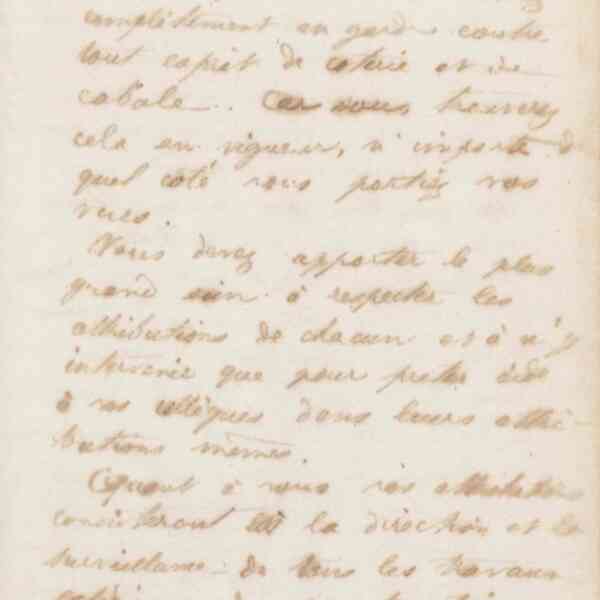 complètement en garde contre
tout esprit de coterie et de
cabale. Car vous trouverez
cela en vigueur, n'importe de
quel coté vous portiez vos
vues.
Vous devez apporter le plus
grand soin à respecter les
attributions de chacun et à n'y
intervenir que pour preter aide
à vos collègues dans leurs attri-
butions mêmes.
Quant à vous vos attributions
consisteront la direction et la
surveillance de tous les travaux